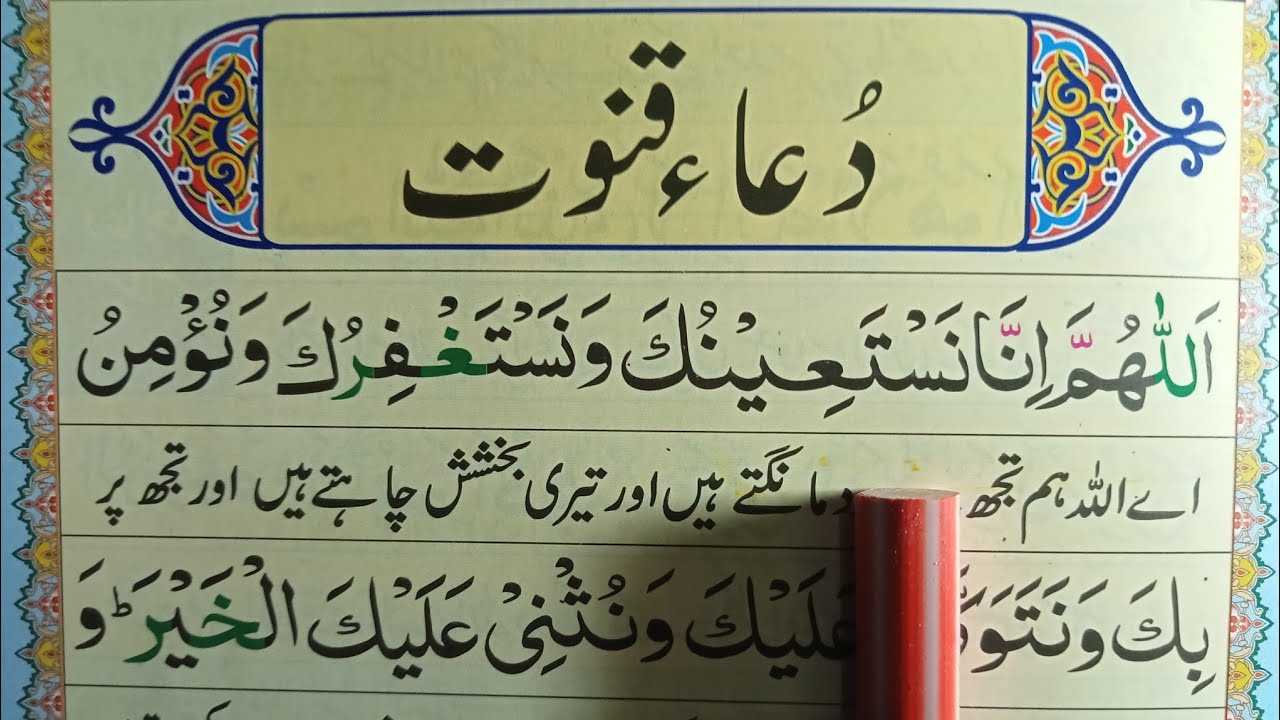 دُعاء قنوت
اَللّٰهُمَّ اِنَّا نَسْتَعِيْنُكَ وَنَسْتَغْفِرُكَ وَنُؤْمِنُ
اے اللہ ہم تجھ مانگتے ہیں اور تیری بخشش چاہتے ہیں اور تجھ پر
بِكَ وَنَتَوَ عَلَيْكَ وَنُثْنِىْ عَلَيْكَ الْخَيْرَ ؕ وَ